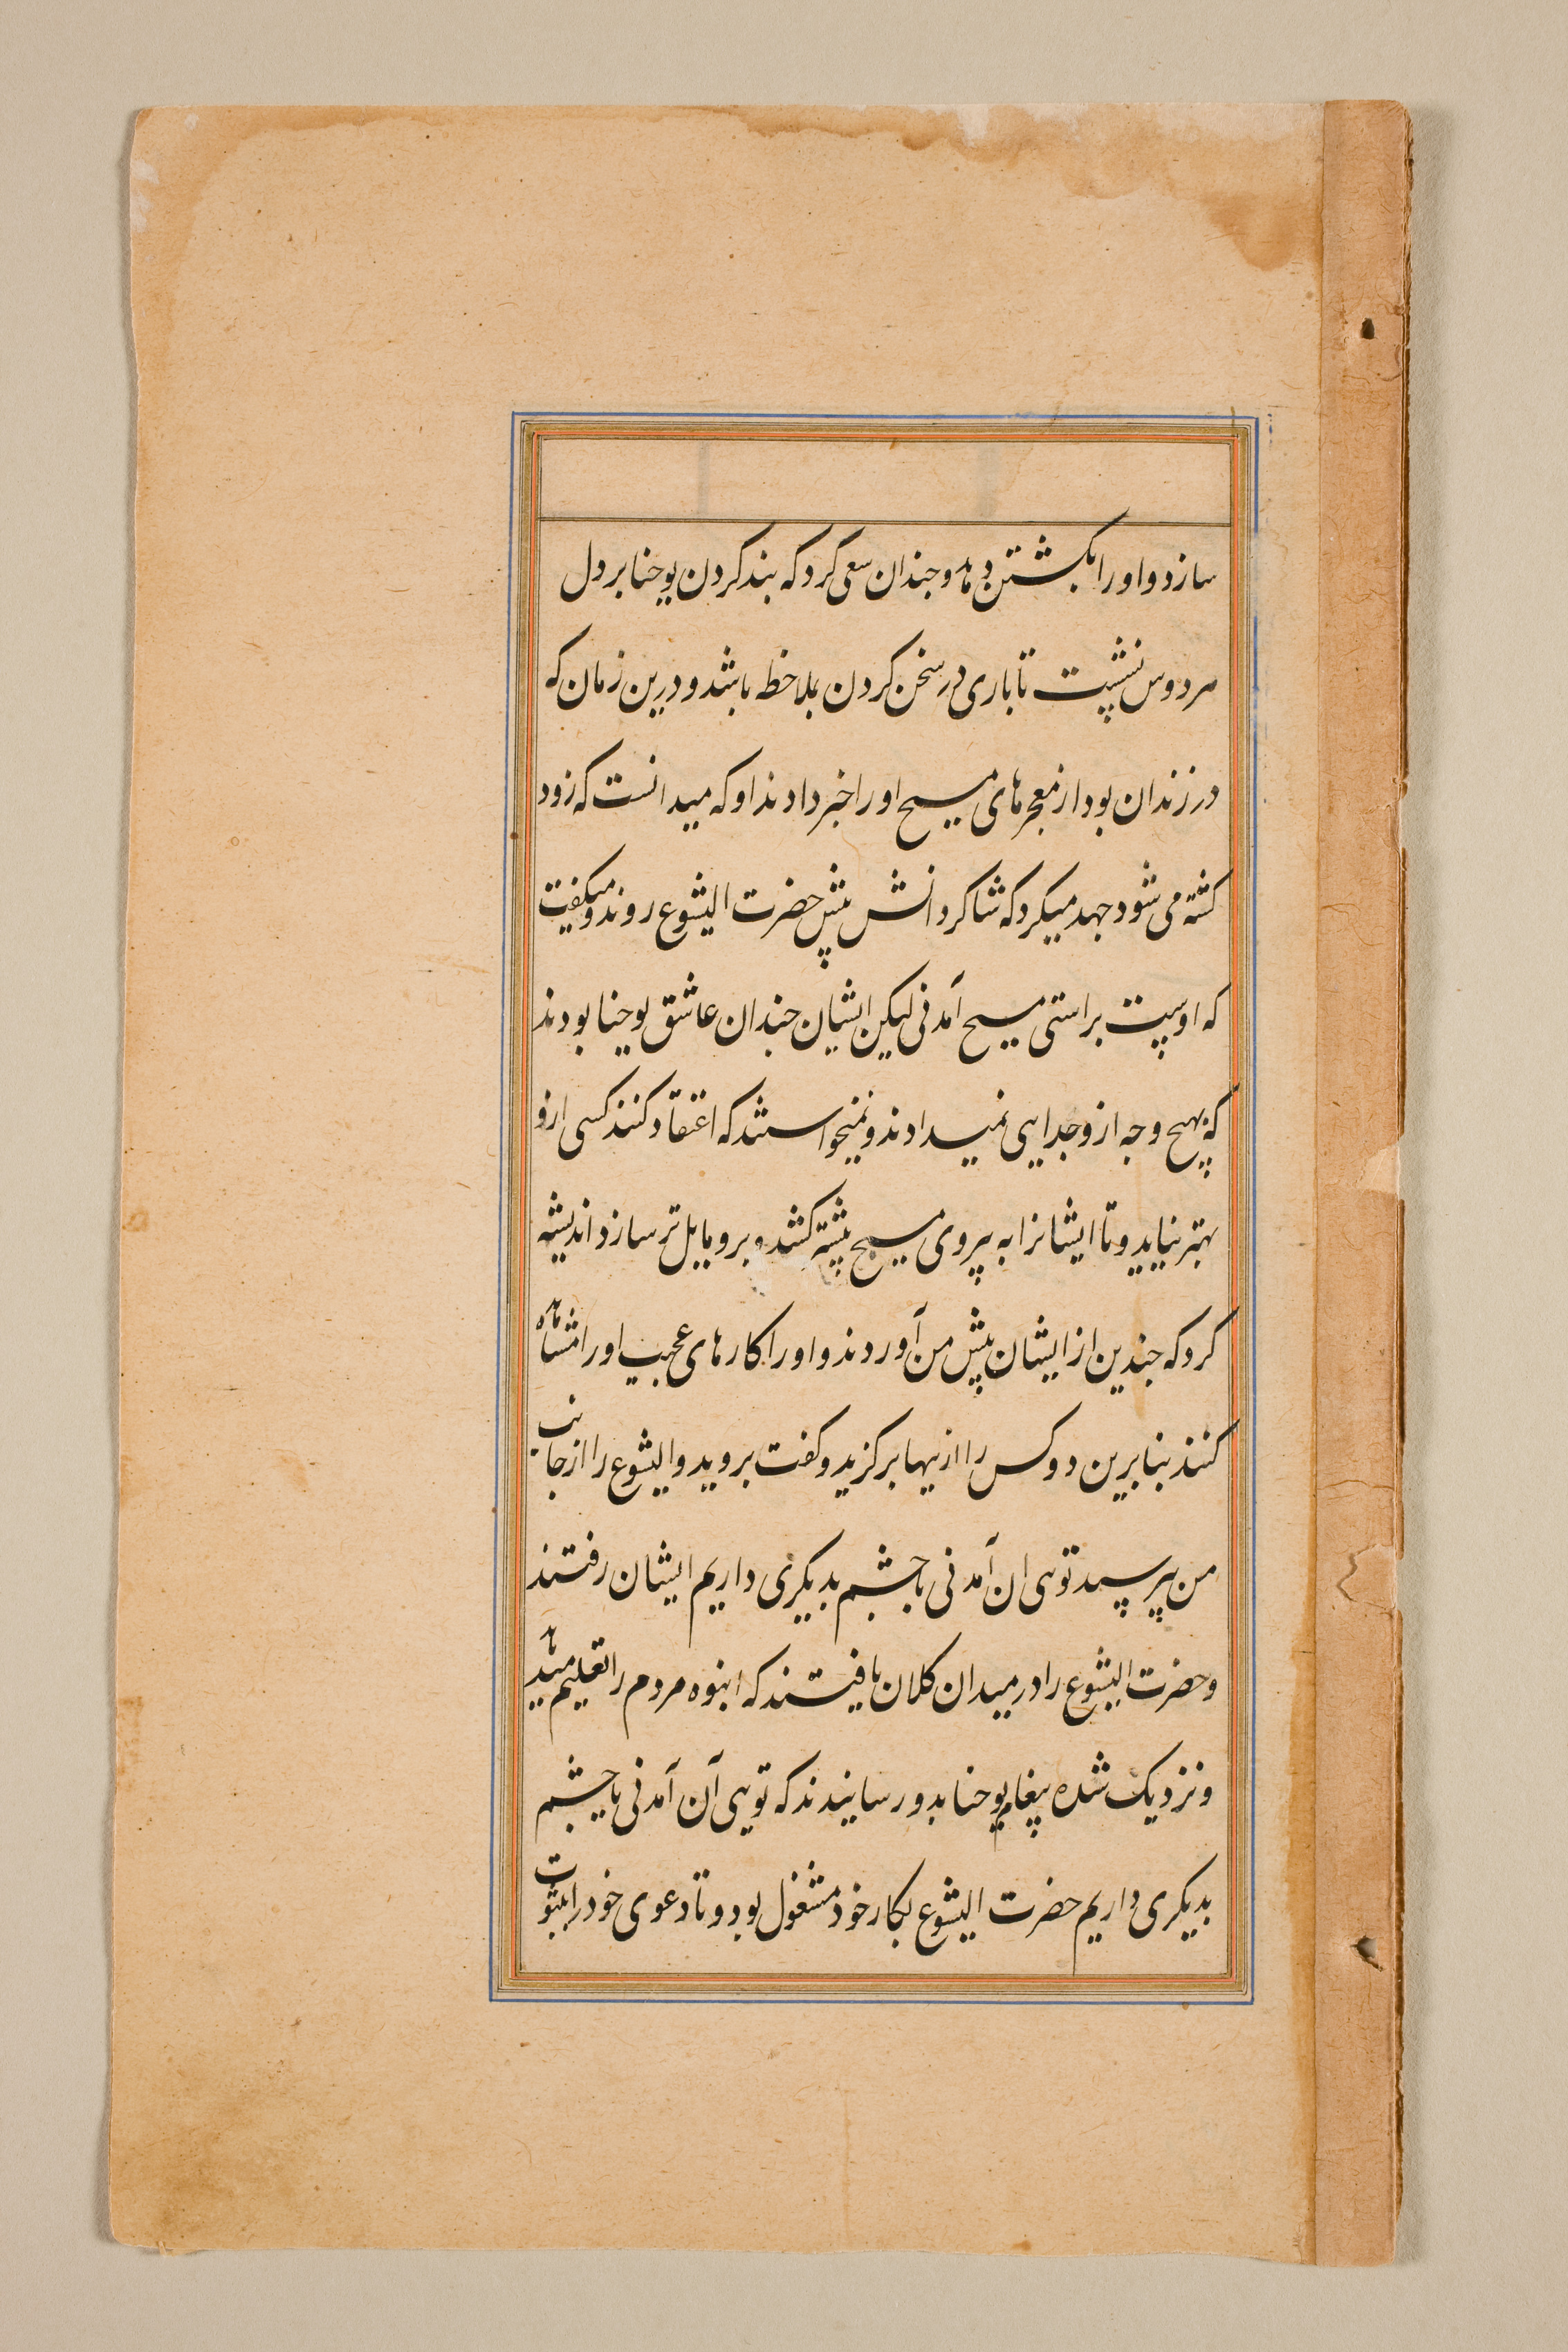 سازد و اورا بکشتن دهد و چندان سعی کرد که بند کردن یوحنا بر دل
هردوس نشست تا باری در سخن کردن بملاحظه باشد و درین زمان که
در زندان بود از معجزهای مسیح اورا خبر دادند او که میدانست که زود
کشته می شود جهد میکرد که شاکردانش پیش حضرت ایشوع روند و میکفت
که اوست براستی مسیح آمدنی لیکن ایشان چندان عاشق یوحنا بودند
که بهیچ وجه ازو جدایی نمیدادند و نمیخواستند که اعتقاد کنند کسی ازو
بهتر بیاید و تا ایشانرا به پیروی مسیح بیشتر کشد و برو مایل تر سازد اندیشه
کرد که چندین از ایشان پیش من آوردند و اورا کارهای عجیب اورا مشاهده
کنند بنابرین دو کس را ازیها برکزید و کفت بروید و ایشوع را از جانب
من بپرسید تویی ان آمدنی یا چشم بدیکری داریم ایشان رفتند
و حضرت ایشوع را در میدان کلان یافتند که انبوه مردم را تعلیم میداد
و نزدیک شده پیغام یوحنا بدو رسانیدند که تویی آن آمدنی یا چشم
بدیکری داریم حضرت ایشوع بکار خود مشغول بود و تا دعوی خود را بثبوت